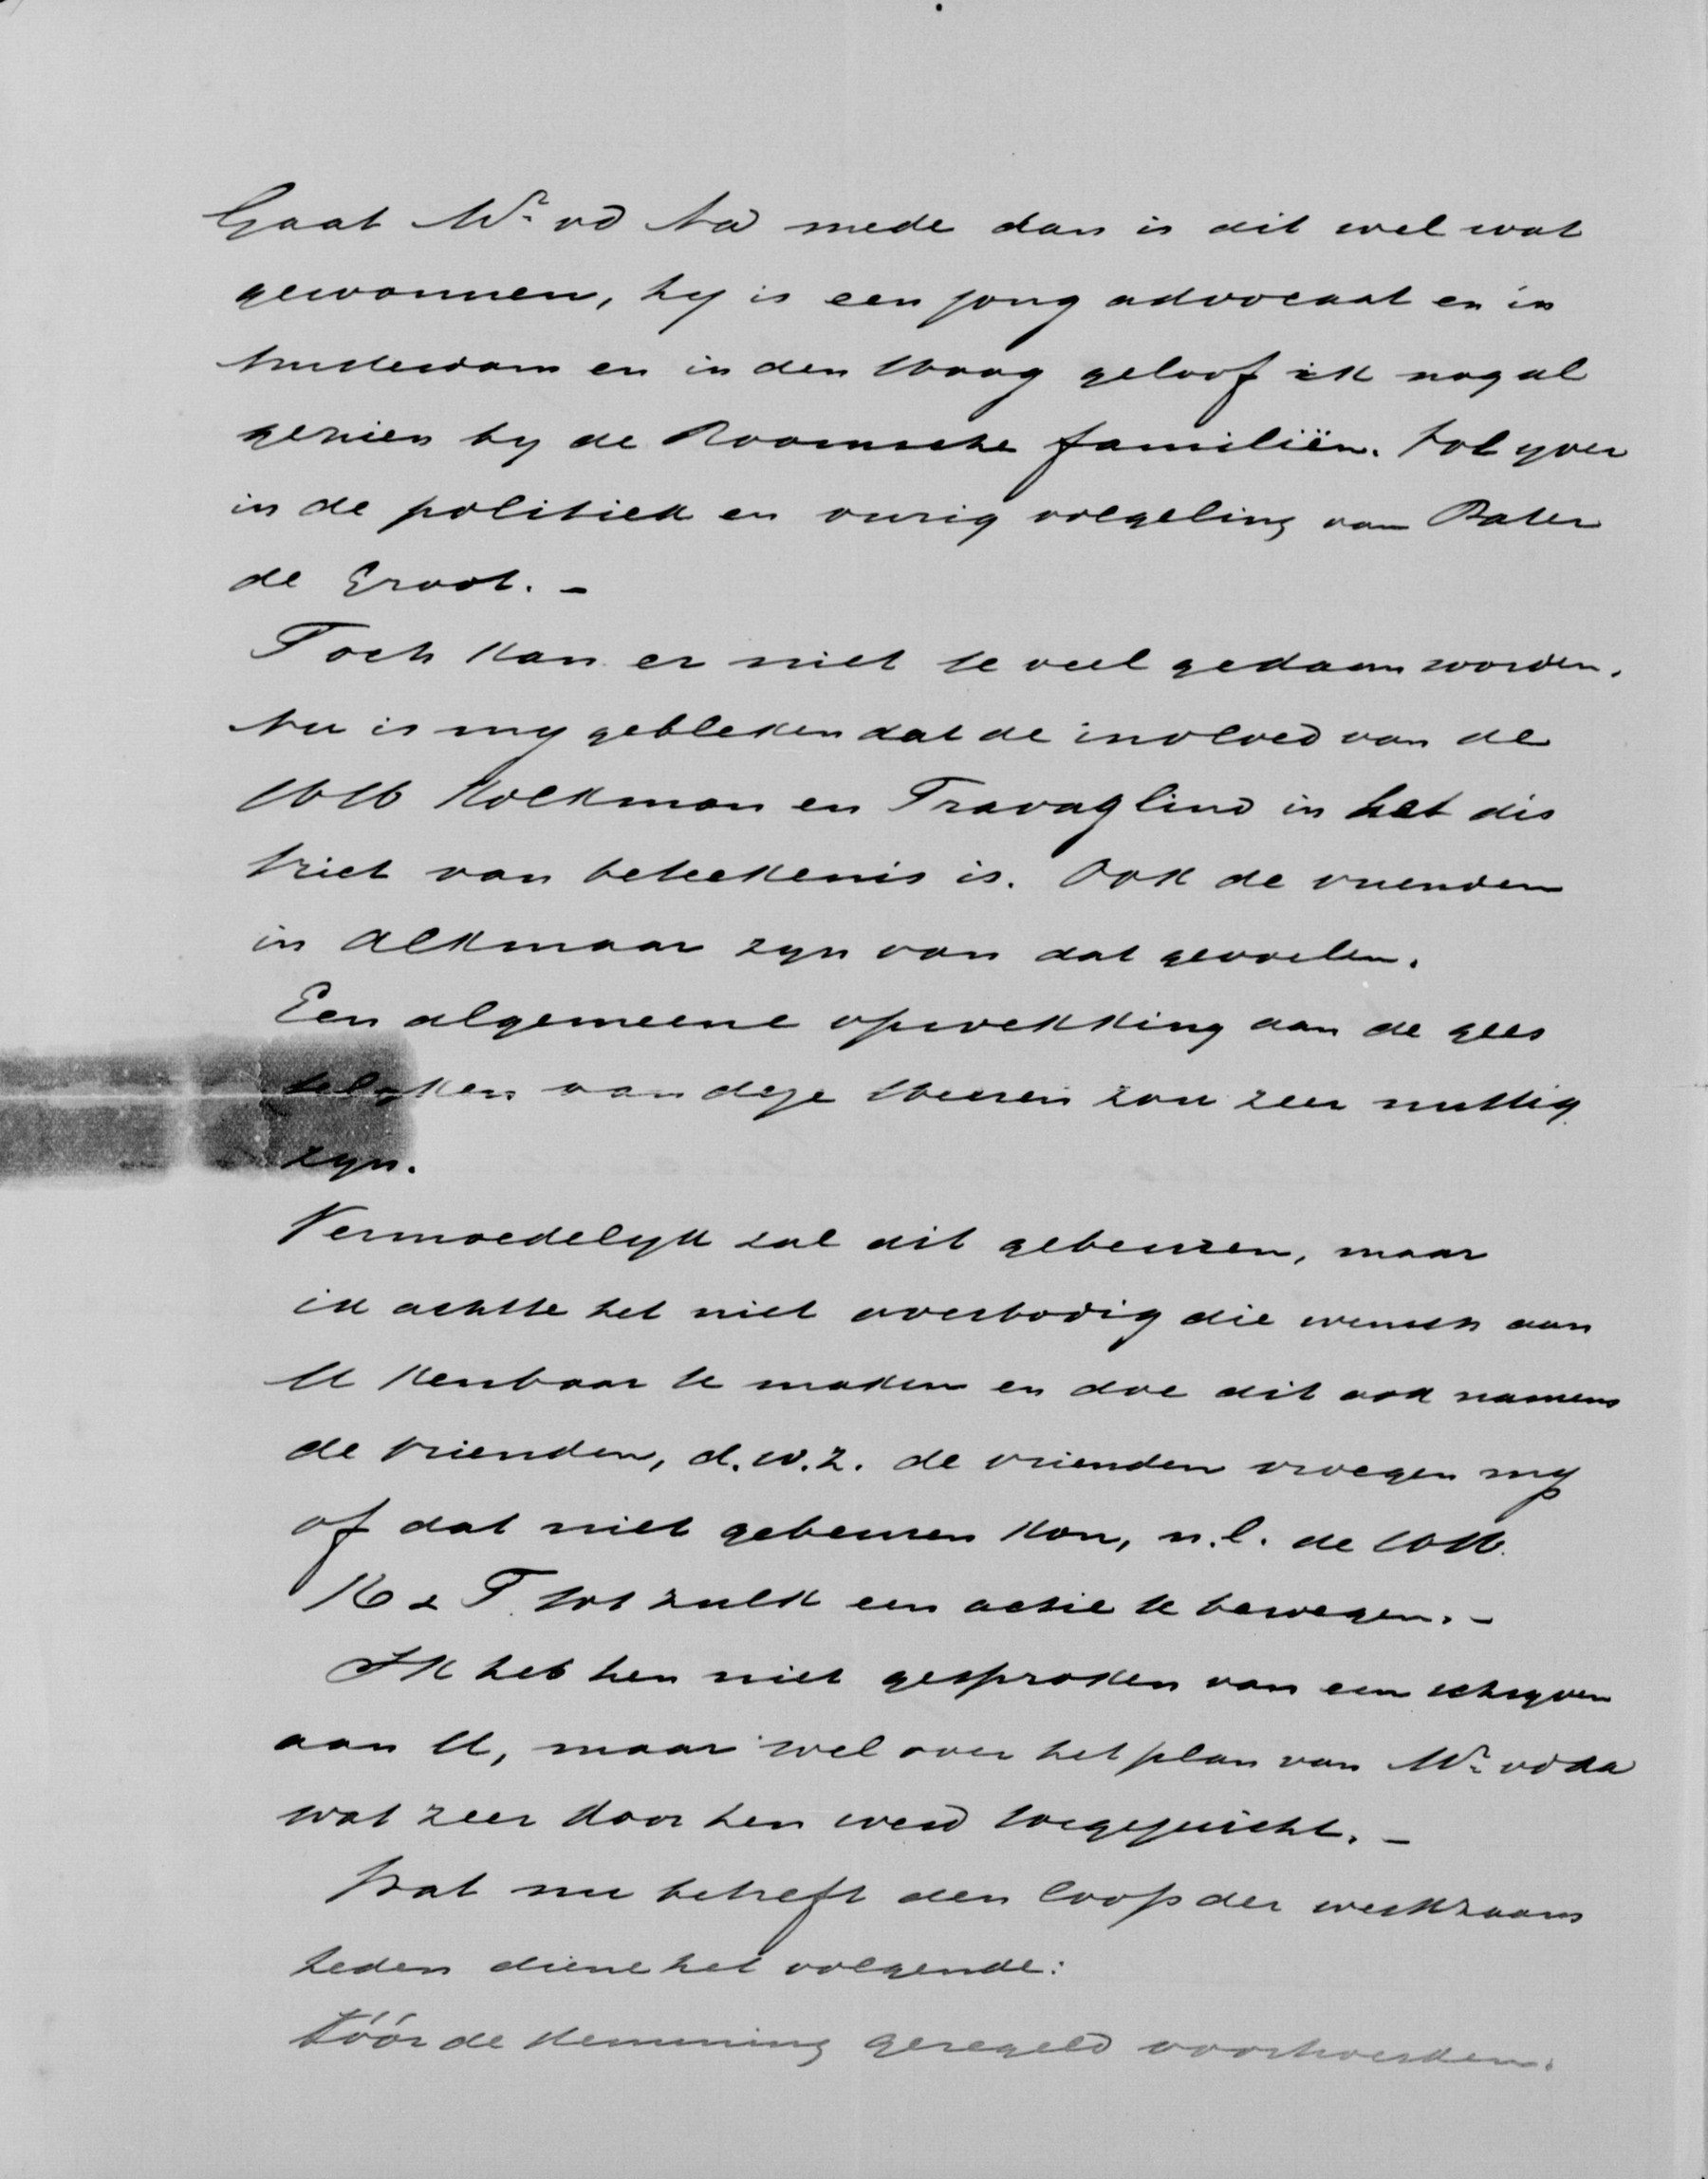 Gaat Mr. vd Aa mede dan is dit wel wat
gewonnen, hy is een jong advocaat en in
Amsterdam en in den Haag geloof ik nog al
gezien by de Roomsche familiën. Vol yver
in de politiek en vurig volgeling van Pater
de Groot. -
Toch kan er niet te veel gedaan worden.
Nu is my gebleken dat de invloed van de
HH Kolkman en Travaglino in het dis
trict van beteekenis is. Ook de vrienden
in Alkmaar zyn van dat gevoelen.
Een algemeene opwekking aan de gees
telyken van deze Heeren zou zeer nuttig
zyn.
Vermoedelyk zal dit gebeuren, maar
ik achtte het niet overbodig die wensch aan
U kenbaar te maken en doe dit ook namens
de vrienden, d.w.z. de vrienden vroegen my
of dat niet gebeuren kon, n.l. de HH.
K & T. tot zulk een actie te bewegen. -
Ik heb hen niet gesproken van een schryven
aan U, maar wel over het plan van Mr. vd Aa
wat zeer door hen werd toegejuicht. -
Wat nu betreft den loop der werkzaam
heden diene het volgende:
Vóór de stemming geregeld voortwerken.